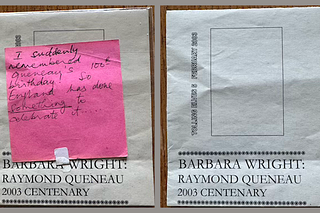 I suddenly
remembered
Queneau's 100th
birthday! So
England has done
something to
celebrate it.....
BARBARA WRIGHT:
RAYMOND QUENEAU
2003 CENTENARY
FEBRUARY 2003
BARBARA WRIGHT:
RAYMOND QUENEAU
2003 CENTENARY